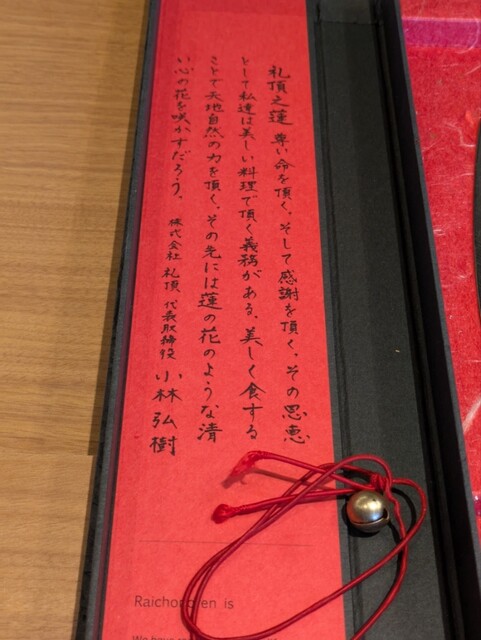 礼頂之蓮　尊い命を頂く、そして感謝を頂く、その恩恵
として私達は美しい料理で頂く義務がある、美しく食する
ことで天地自然の力を頂く、その先には蓮の花のような清
い心の花を咲かすだろう。　株式会社 礼頂　代表取締役　小林弘樹
is
We have